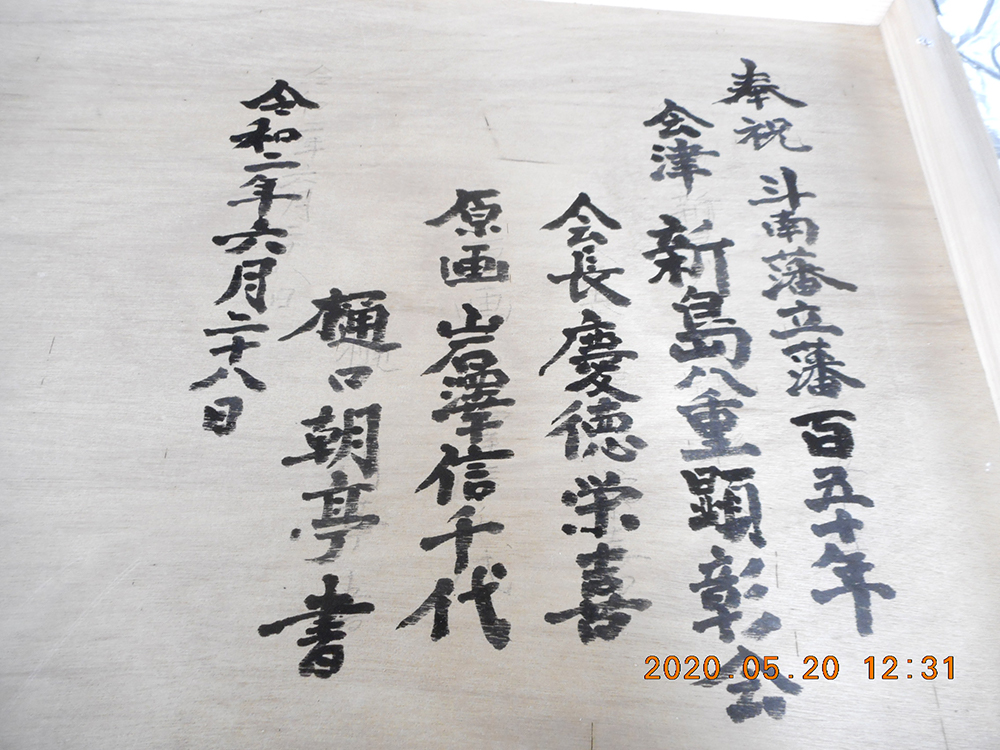 奉祝 斗南藩立藩百五十年
会津 新島八重顕彰会
会長 慶徳栄喜
原画 岩澤信千代
樋口朝亭 書
令和二年六月二十八日
2020.05.20 12:31